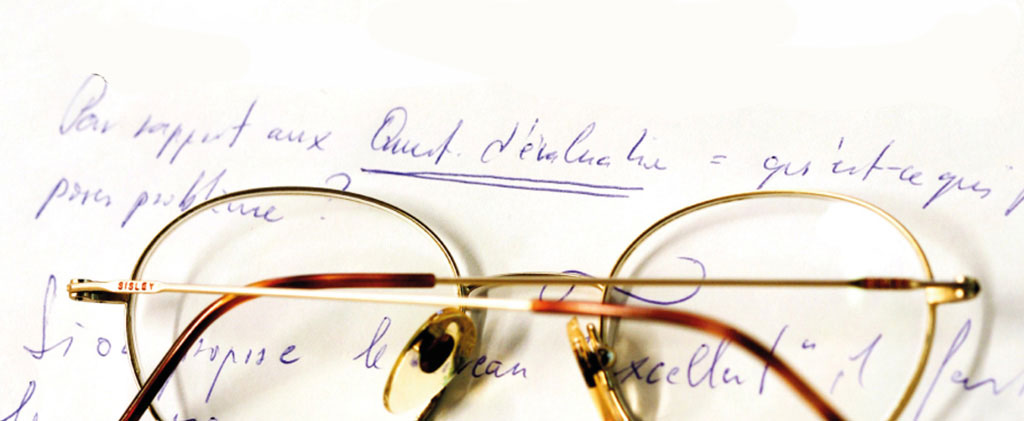 Par rapport aux Quest. d'évaluation = qu'est-ce qui p
poser problème ?
SISLEY
Si on propose le excellent" il faut